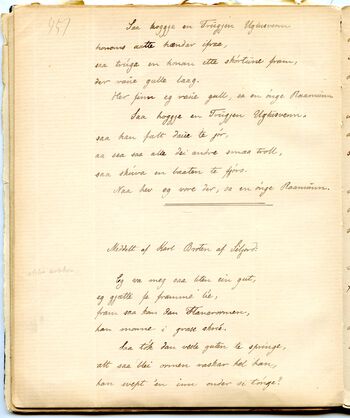 957
Saa hoggje en Trugjen Uglusvenn
honoms aatte hændar ifraa,
saa tvige en honan ette skortine fram,
der vaue gulle laag.
Her finn eg vaue gull, sa en onge Raamunn
Saa hoggje en Trugjen Uglusvenn.
saa han fatt daue te jor,
aa saa saa alle dei andre smaa troll,
saa skuva en baaten te fjors.
Naa hev eg vore der, sa en onge Raamunn.
Meddelt af Kari Broten af Siljord.
Eg va meg saa liten ein gut,
eg gjætte je frammé lie,
fram saa kom den Flanarormen,
han monne i grase skrie.
Saa tok dan vesle guten te springe,
att saa blei ormen vaskar hel han,
han svept 'en inn onder si tonge?